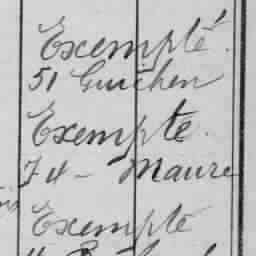 Exempté.
51 Guichen
Exempte.
74 - Maure
Exempte